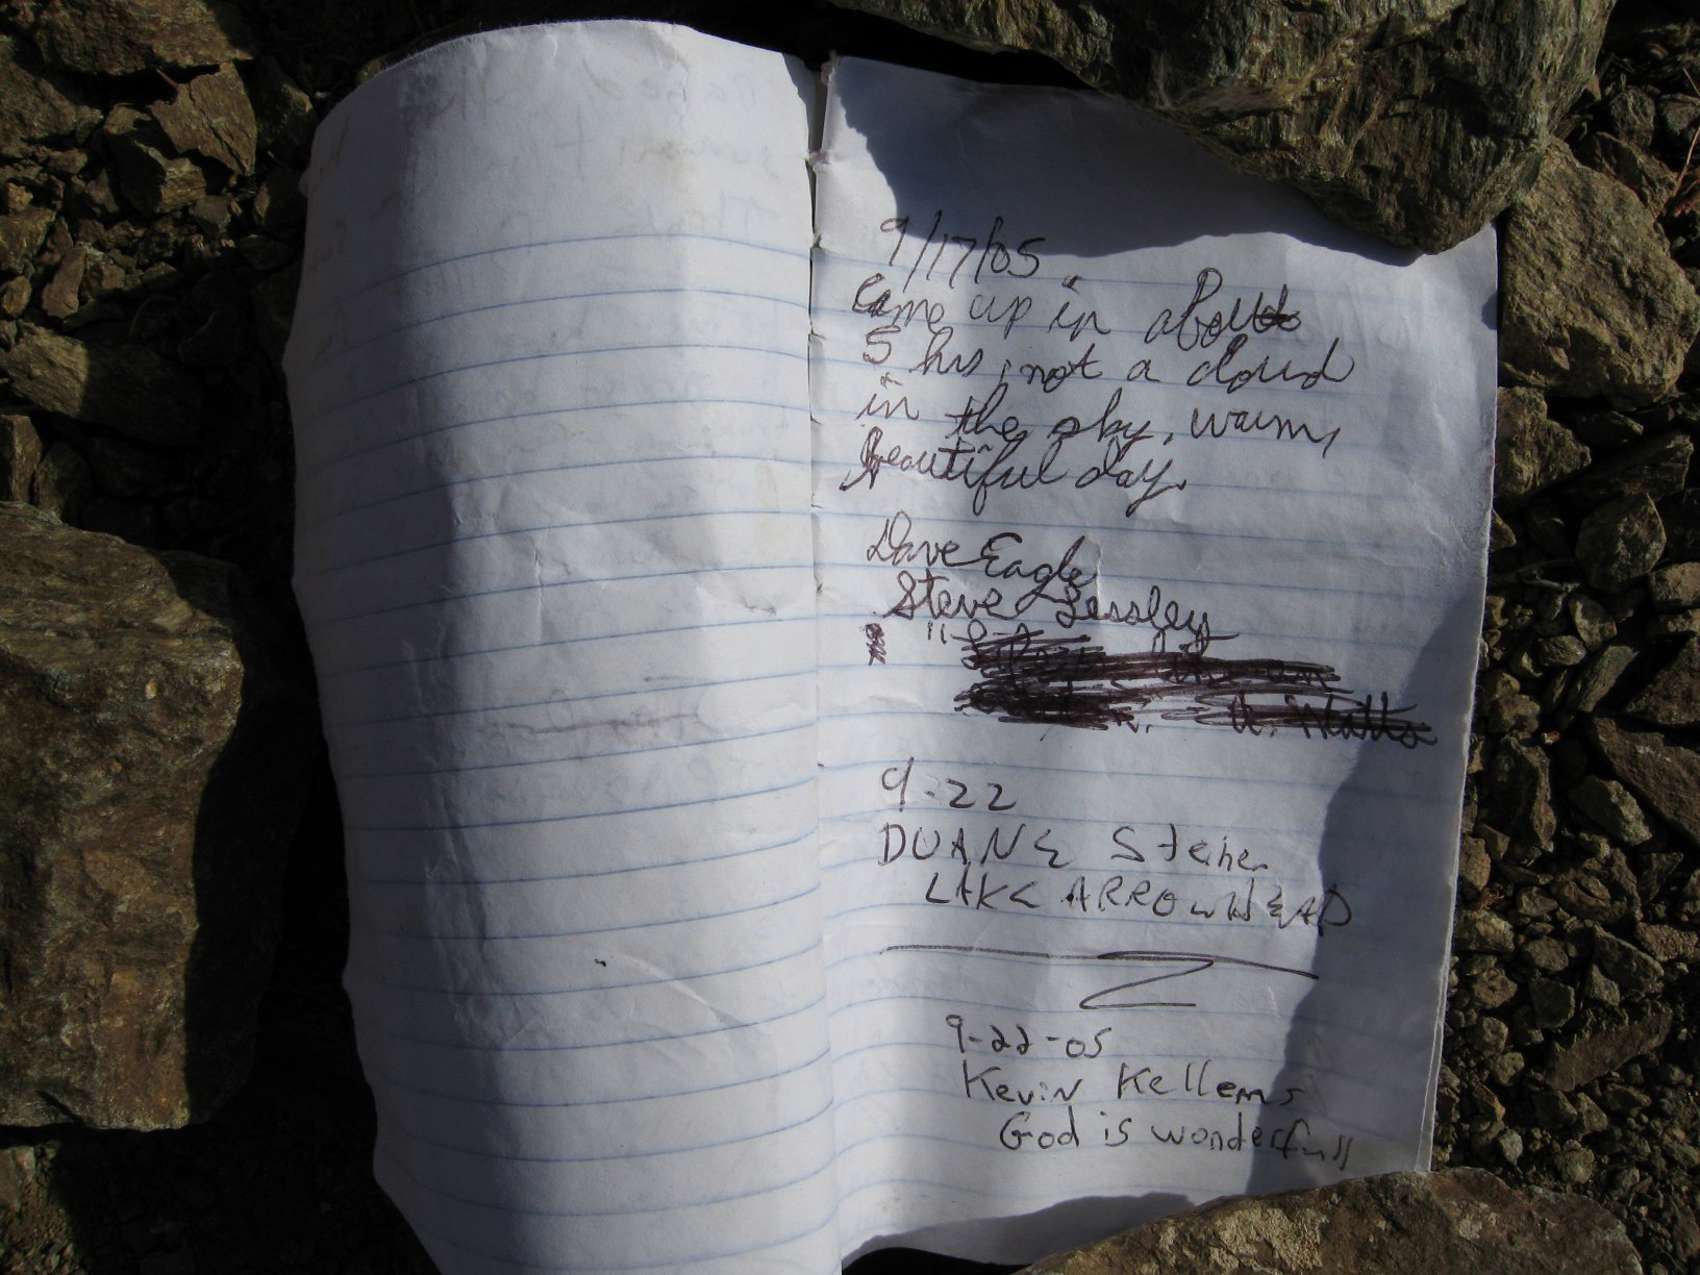 9/17/05
Came up in about
5 hrs, not a cloud
in the sky, warm,
Beautiful day.
Dave Eagle
Steve Lessley
9-22
DUANE Steiner
LAKE ARROWHEAD
9-22-05
Kevin Kellems
God is wonderfull